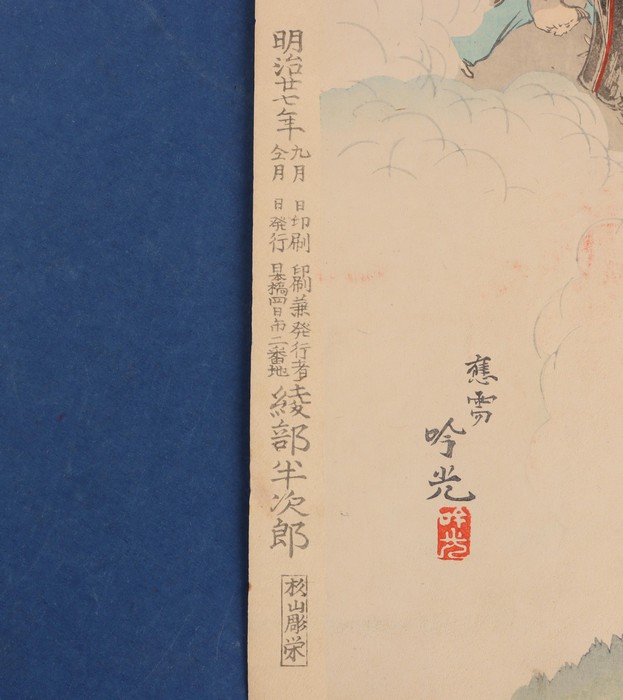 應雪
吟光
吟光
明治廿七年
九月 日印刷
仝月 日発行
印刷兼発行者
日本橋四日市二番地
綾部半次郎
杉山彫栄